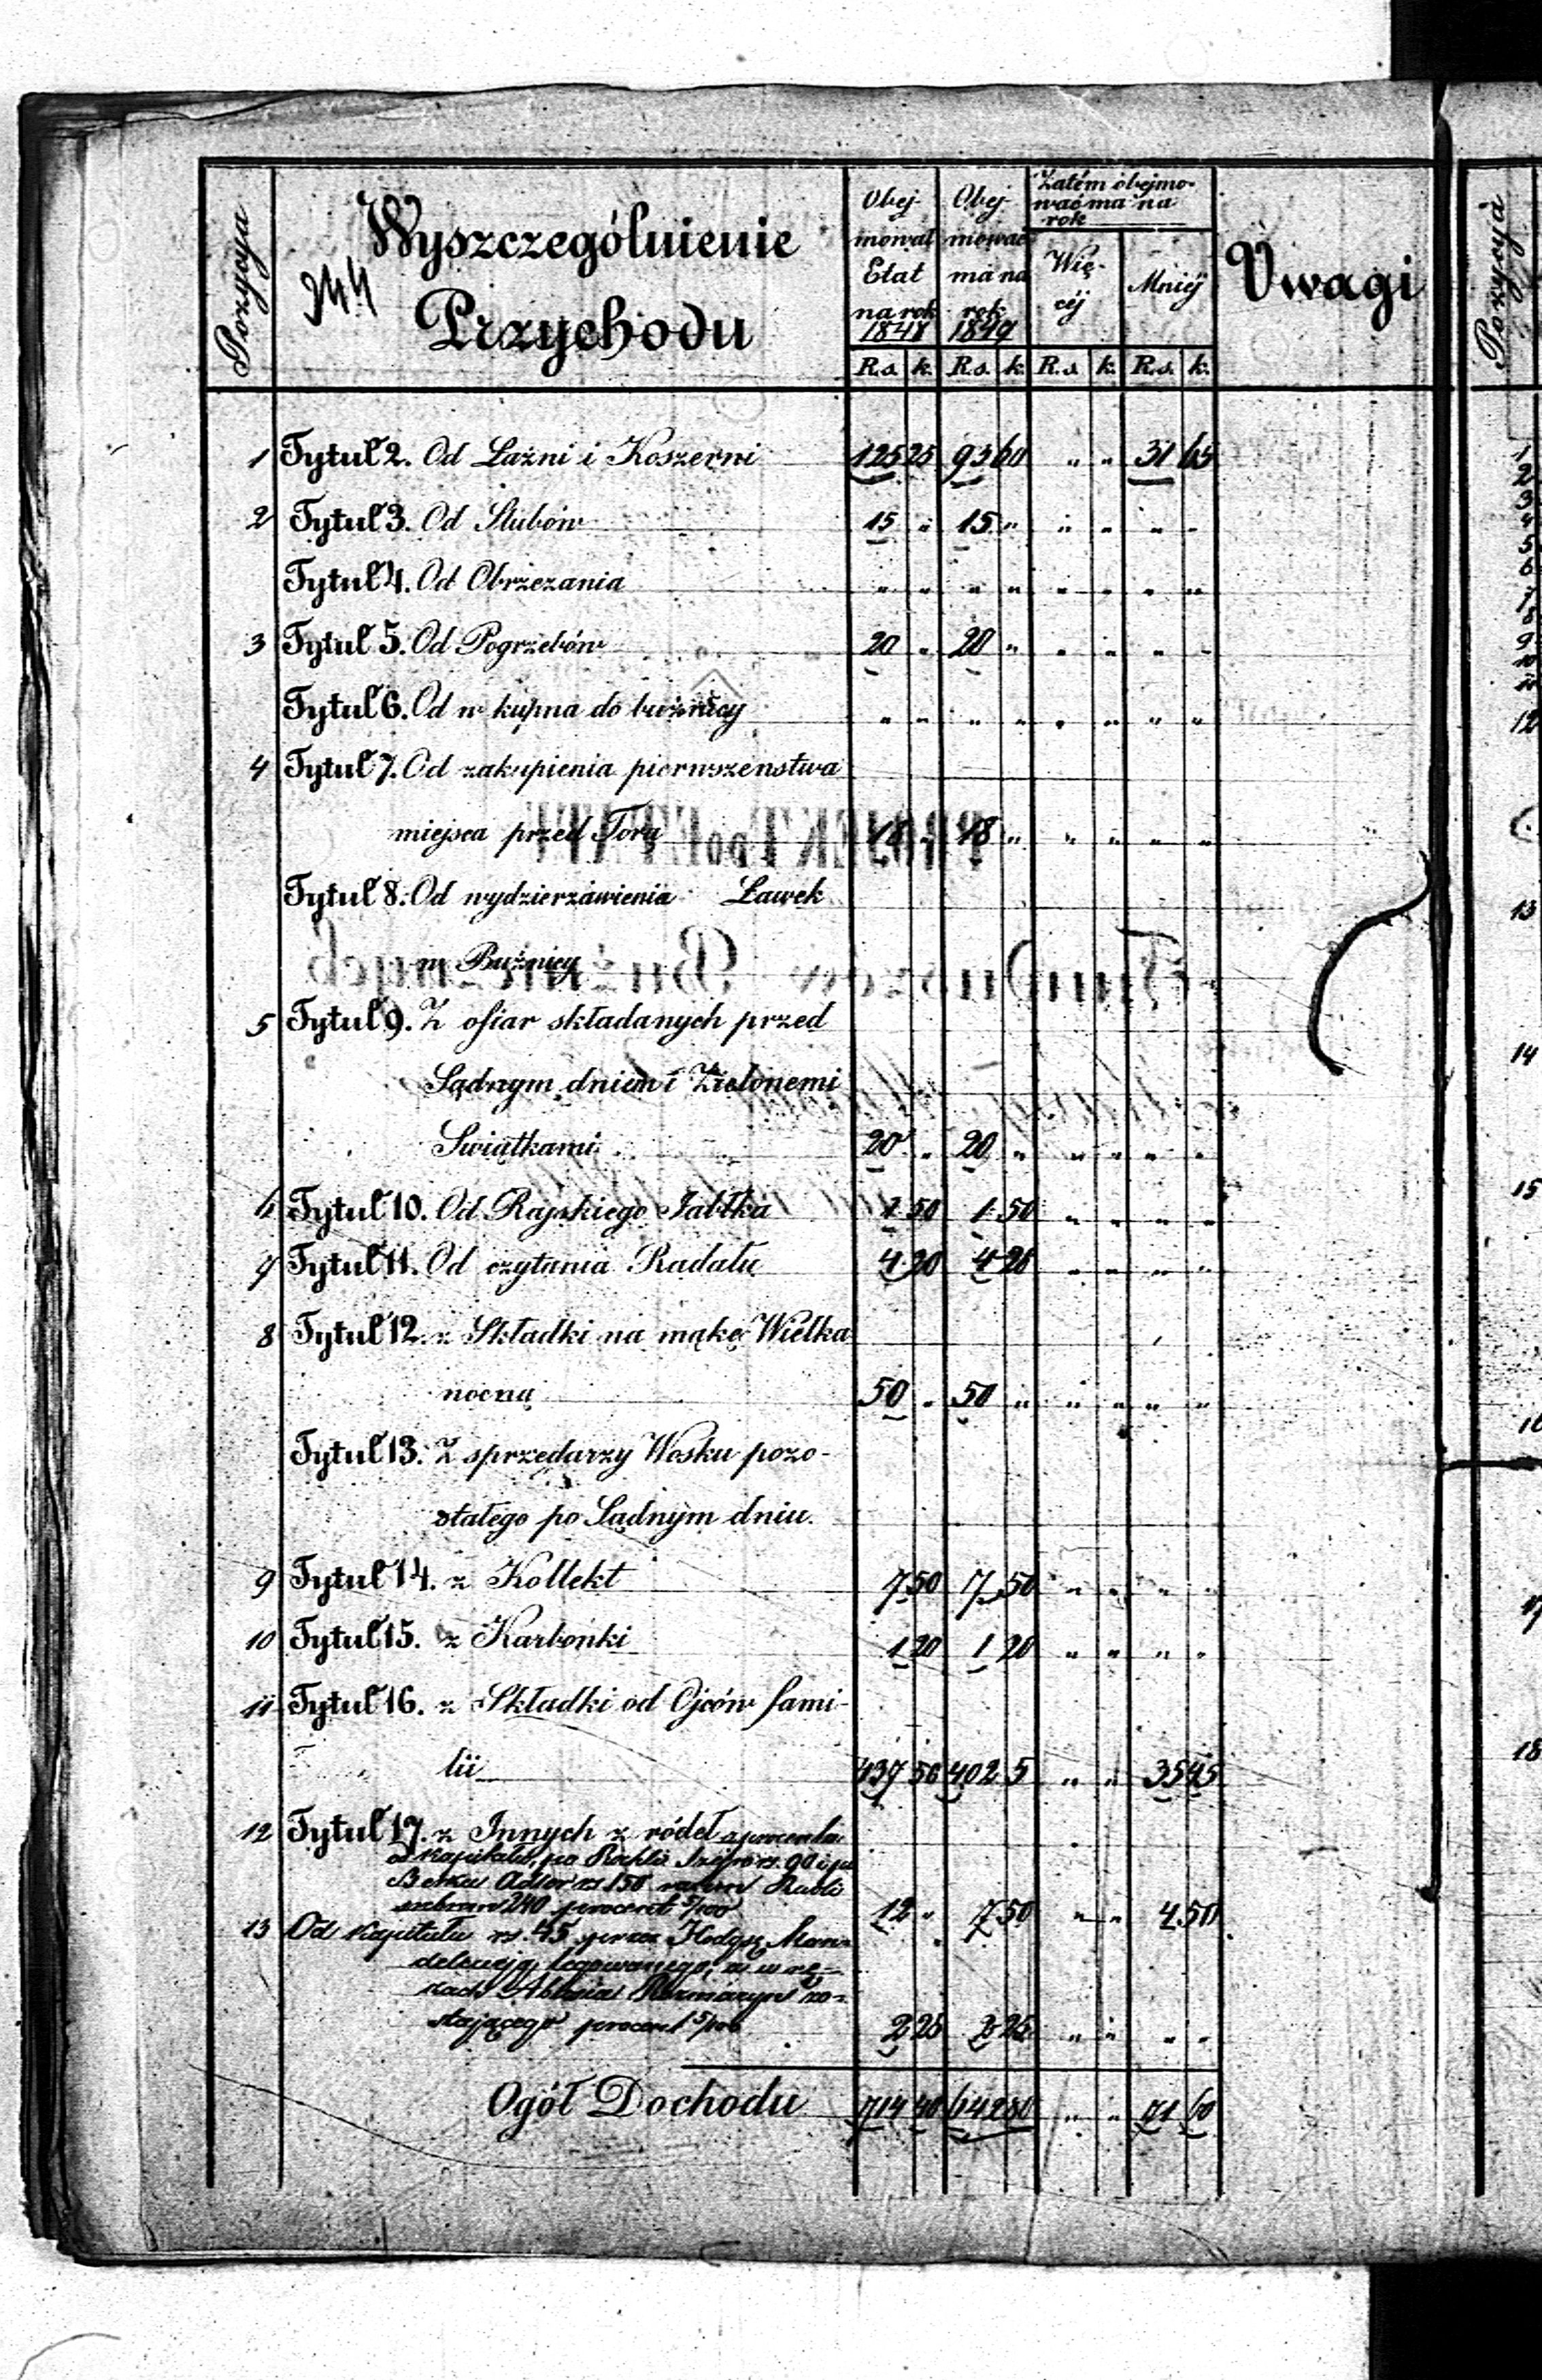 Pozycya
Wyszczególnienie
Przychodu
244
Obej-
mował
Etat
na rok
1848
Obej-
mować
ma na
rok
1849
Zatém obejmo-
wać ma na
rok
Wię-
céj
Mniéj
Uwagi
Pozycyja
R.s. k. R.s. k. R.s. k. R.s. k.
1 Tytuł 2. Od Łaźni i Koszerni 125 25 93 60 " " 31 65
2 Tytuł 3. Od Slubów 15 " 15 " " " " "
Tytuł 4. Od Obrzezania " " " " " " " "
3 Tytuł 5. Od Pogrzebów 20 " 20 " " " " "
Tytuł 6. Od w kupna do bużnicy " " " " " " " "
4 Tytuł 7. Od zakupienia pierwszenstwa
miejsca przed Torą 18 " 18 " " " " "
Tytuł 8. Od wydzierzawienia Ławek
w Bużnicy
5 Tytuł 9. Z ofiar składanych przed
Sądnym dniem i Zielonemi
Swiątkami 20 " 20 " " " " "
6 Tytuł 10. Od Rajskiego Jabłka 1 50 1 50 " " " "
7 Tytuł 11. Od czytania Radału 4 20 4 20 " " " "
8 Tytuł 12. z Składki na mąkę Wielka
nocną 50 " 50 " " " " "
Tytuł 13. Z sprzedarzy Wosku pozo-
stałego po Sądnym dniu.
9 Tytuł 14. z Kollekt 7 50 7 50 " " " "
10 Tytuł 15. z Karbonki 1 20 1 20 " " " "
11 Tytuł 16. z Składki od Ojców fami-
lii 437 50 402 5 " " 35 45
12 Tytuł 17. z Innych z ródeł a procentu
od kapitału, po Rs. 90 i po
Berku Adler rs 150 razem Rubli
srebrem 240 procent 5/100 12 " 7 50 " " 4 50
13 Od Kapitału rs. 45 przez
legowanego, a w rę-
kach zo-
stającego procent 5/100 2 25 2 25 " " " "
Ogół Dochodu 714 40 642 80 " " 71 60
1
2
3
4
5
6
7
8
9
10
11
12
13
14
15
16
17
18